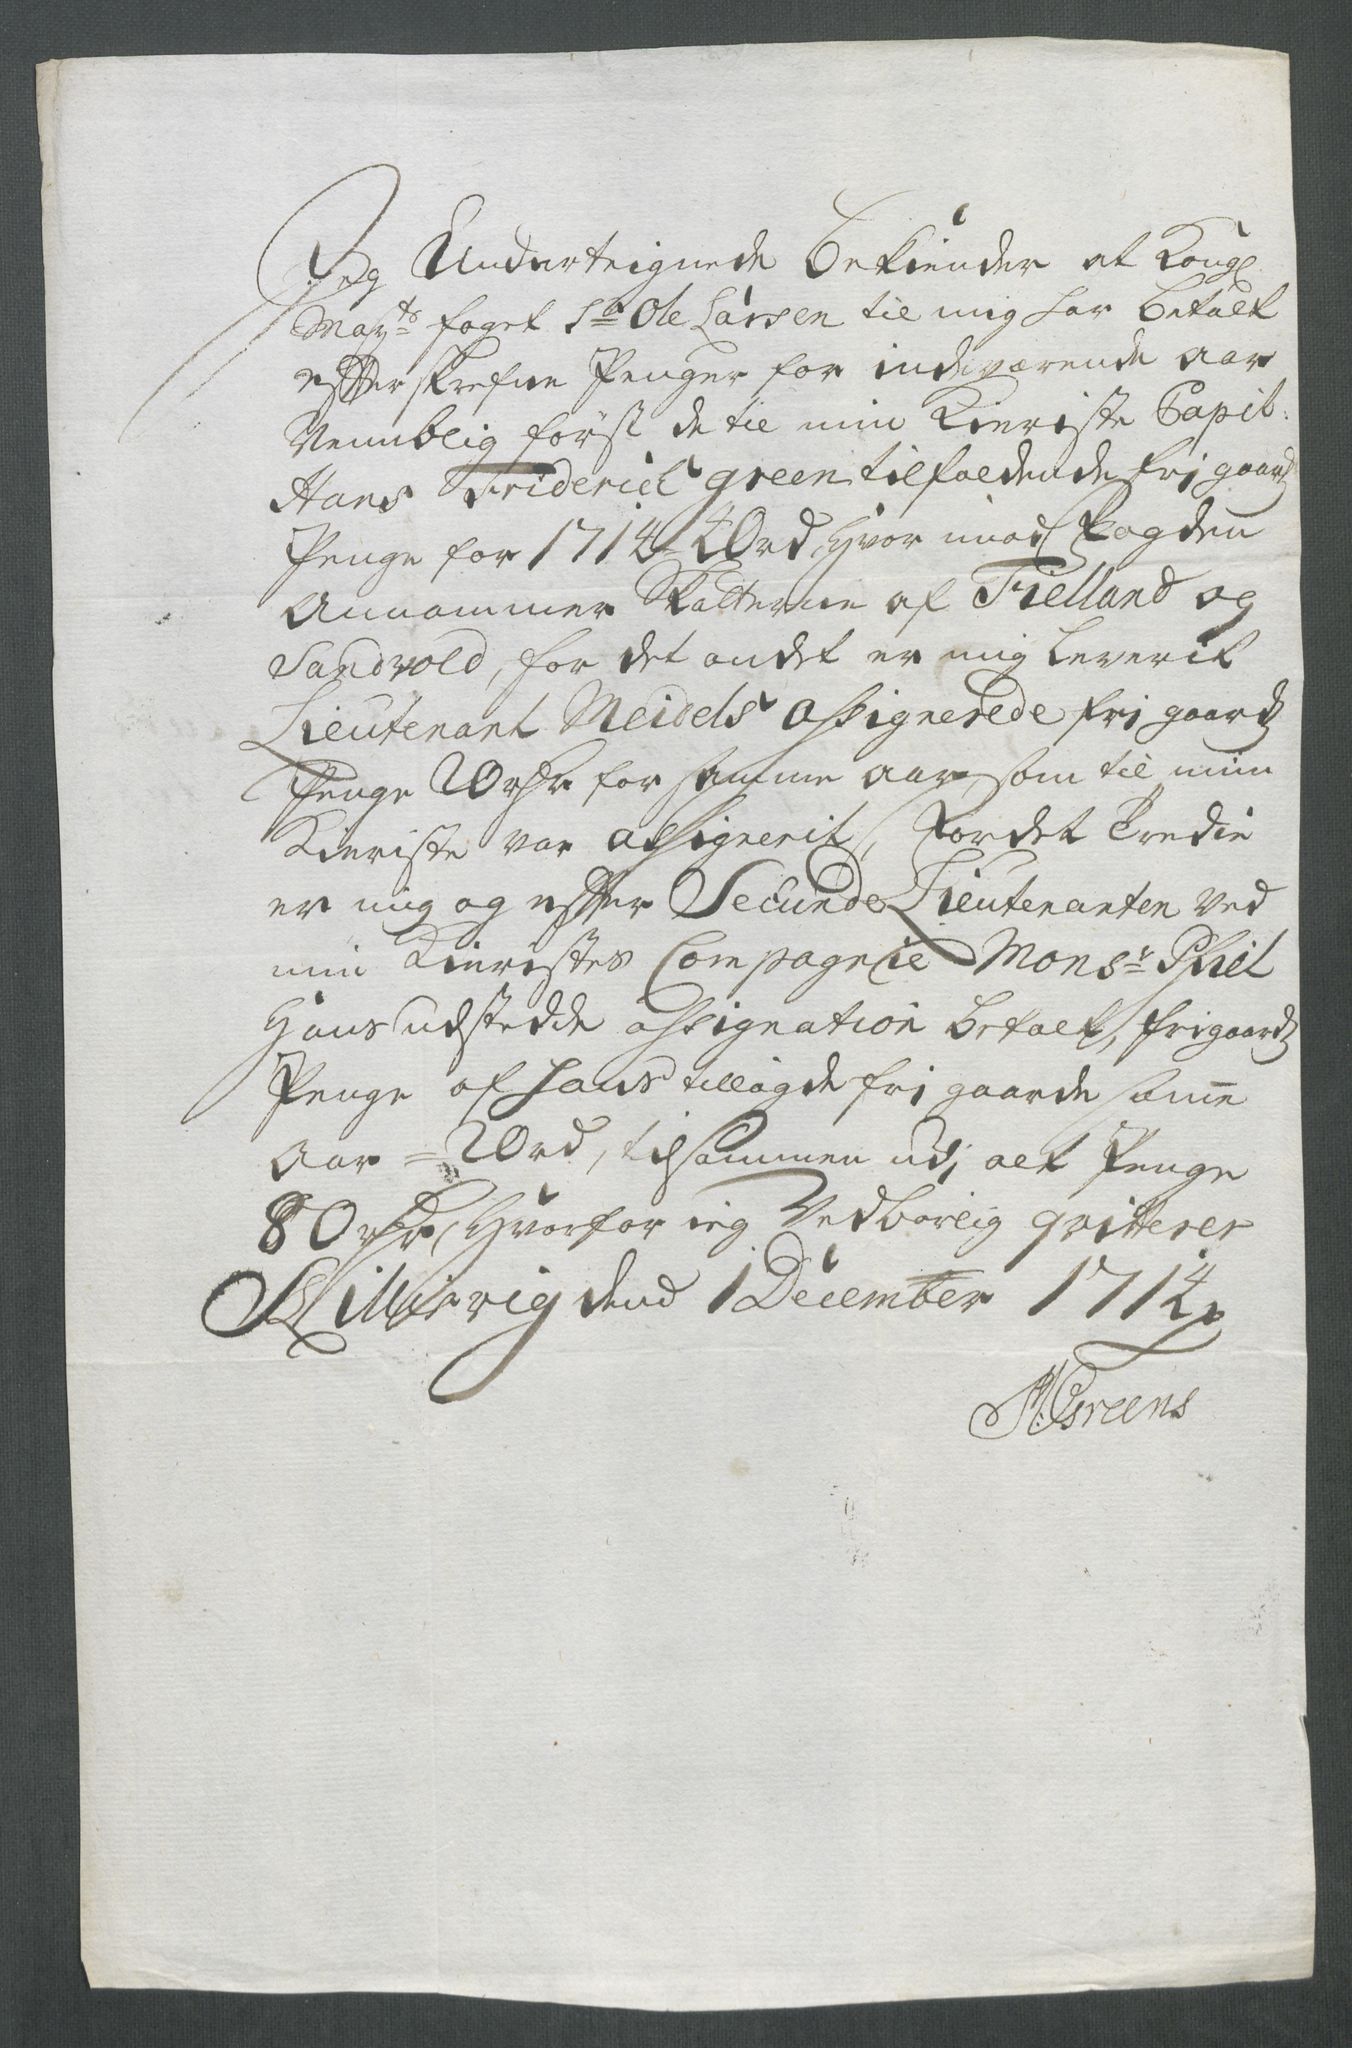 Jeg Underteignede bekiender at Kongl
May:ts foget Sr Ole Larsen til mig har betalt
effterskrefne Penger for indeværende aar
Nemblig först de til min Kieriste Capit:
Hans Friderich green tilfaldende fri gaards
Penge for 1714 = 40 rd, hvor imod Fogden
annammer Skatterne af Fielland og
Sandvold, for det andet er mig leverit
Lieutenant Meidels assignerede fri gaards
Penge 20 rdr for samme aar som til min
Kieriste var assignerit, For det tredie
er mig og effter Secunde Lieutenanten ved
min Kieristes Compagnie Mons:r
hans udstedde assignation betalt, frigaards
Penge af hans tillagde fri gaarde same
aar = 20 rd, tilsammen udj alt Penge
80 rdr, hvorfor ieg Vedbørlig qvitterer
dend 1 December 1714
Greens